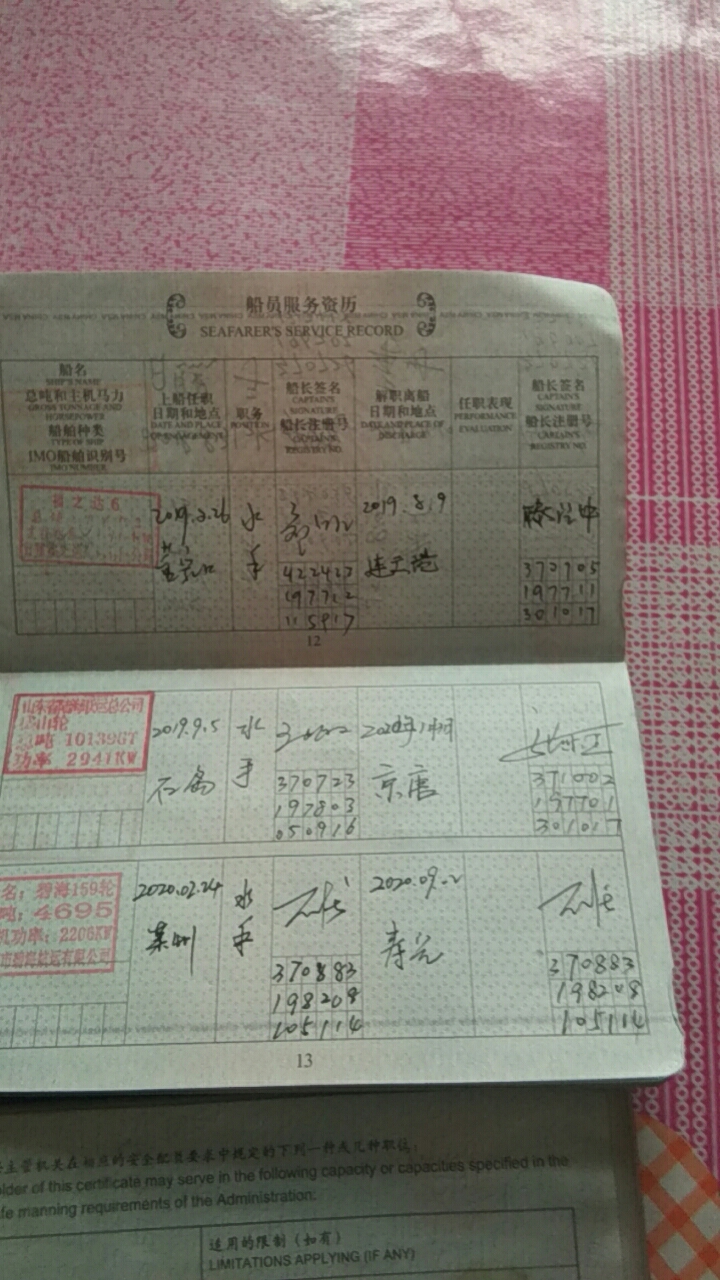 船员服务资历
SEAFARER'S SERVICE RECORD
船名
SHIP'S NAME
总吨和主机马力
GROSS TONNAGE AND
HORSEPOWER
船舶种类
TYPE OF SHIP
IMO船舶识别号
IMO NUMBER
上船任职
日期和地点
DATE AND PLACE
OF ENGAGEMENT
职务
POSITION
船长签名
CAPTAIN'S
SIGNATURE
船长注册号
CAPTAIN'S
REGISTRY NO.
解职离船
日期和地点
DATE AND PLACE OF
DISCHARGE
任职表现
PERFORMANCE
EVALUATION
船长签名
CAPTAIN'S
SIGNATURE
船长注册号
CAPTAIN'S
REGISTRY NO.
福之达6
2019.2.26
水
手
422423
197712
115917
2019.8.9
连云港
370705
197711
301017
12
山轮
总吨 10139GT
功率 2941KW
2019.9.5
石岛
水
手
370723
197803
050916
京唐
371002
197701
301017
名：碧海159轮
吨：4695
机功率：2206KW
2020.02.24
莱州
水
手
370883
198208
105114
2020.09.2
寿光
370883
198208
105114
13
主管机关在相应的安全配员要求中规定的下列一种或几种职位：
older of this certificate may serve in the following capacity or capacities specified in the
fe manning requirements of the Administration:
适用的限制（如有）
LIMITATIONS APPLYING (IF ANY)